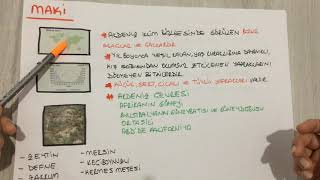 MAKİ
* AKDENİZ İKLİM BÖLGESİNDE GÖRÜLEN BODUR
AĞAÇLAR VE ÇALILARDIR.
* YIL BOYUNCA YEŞİL KALAN, YAZ KURAKLIĞINA DAYANIKLI,
KIŞ SOĞUĞUNDAN OLUMSUZ ETKİLENMEYEN YAPRAKLARINI
DÖKMEYEN BİTKİLERDİR
* KÜÇÜK, SERT, CİLALI VE TÜYLÜ YAPRAKLARI VARDIR.
* AKDENİZ ÇEVRESİ
AFRİKANIN GÜNEYİ
AVUSTRALYANIN GÜNEYBATISI VE GÜNEYDOĞUSU
ORTA ŞİLİ
ABD'DE KALİFORNİYA
- ZEYTİN
- DEFNE
- ZAKKUM
- MERSİN
- KEÇİBOYNUZU
- KERMES MEŞESİ